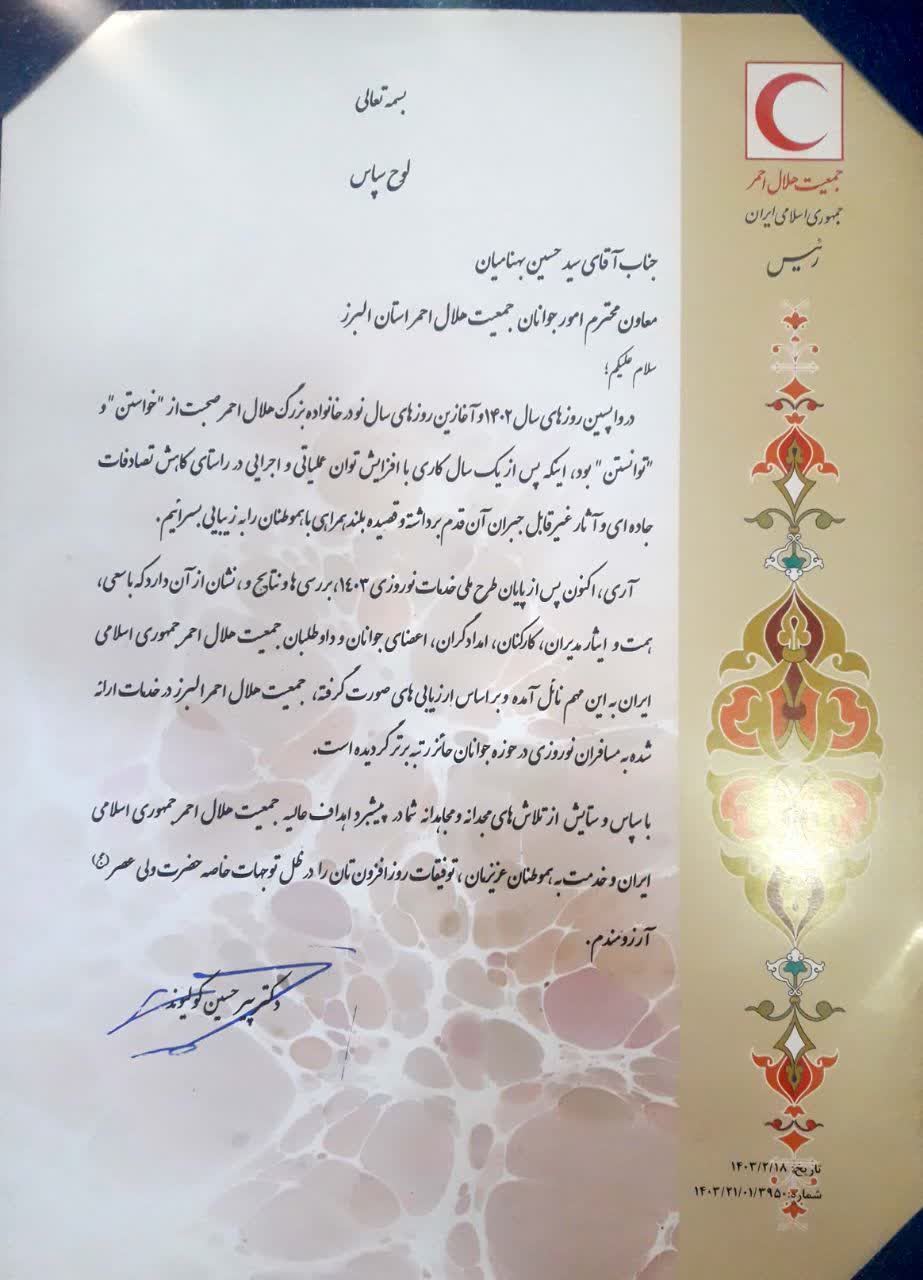 جمعیت هلال احمر
جمهوری اسلامی ایران
رئیس
بسمه تعالی
لوح سپاس
جناب آقای سید حسین بهنامیان
معاون محترم امور جوانان جمعیت هلال احمر استان البرز
سلام علیکم؛
در واپسین روزهای سال ۱۴۰۲ و آغازین روزهای سال نو در خانواده بزرگ هلال احمر صحبت از "خواستن" و
"توانستن" بود، اینکه پس از یک سال کاری با افزایش توان عملیاتی و اجرایی در راستای کاهش تصادفات
جاده ای و آثار غیر قابل جبران آن قدم برداشته و قصیده بلند همراهی با هموطنان را به زیبایی بسرائیم.
آری، اکنون پس از پایان طرح ملی خدمات نوروزی ۱۴۰۳، بررسی ها و نتایج و، نشان از آن دارد که با سعی،
همت و ایثار مدیران، کارکنان، امدادگران، اعضای جوانان و داوطلبان جمعیت هلال احمر جمهوری اسلامی
ایران به این مهم نائل آمده و بر اساس ارزیابی های صورت گرفته، جمعیت هلال احمر البرز در خدمات ارائه
شده به مسافران نوروزی در حوزه جوانان حائز رتبه برتر گردیده است.
با سپاس و ستایش از تلاش های مجدانه و مجاهدانه شما در پیشبرد اهداف عالیه جمعیت هلال احمر جمهوری اسلامی
ایران و خدمت به هموطنان عزیزمان، توفیقات روز افزون تان را در ظل توجهات خاصه حضرت ولی عصر (عج)
آرزومندم.
دکتر پیرحسین کولیوند
تاریخ: ۱۴۰۳/۲/۱۸
شماره: ۱۴۰۳/۲۱/۰۱/۳۹۵۰